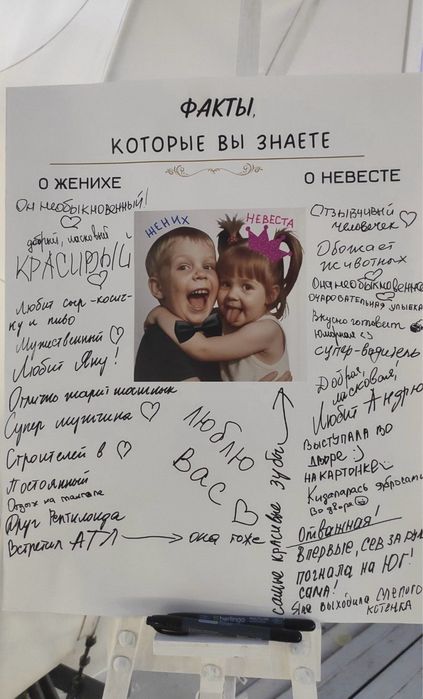 ФАКТЫ,
КОТОРЫЕ ВЫ ЗНАЕТЕ
О ЖЕНИХЕ
Он необыкновенный!
добрый, ласковый
КРАСИВЫЙ
Любит сыр-косич-
ку и пиво
Мужественный
Любит Яну!
Отлично жарит шашлык
Супер мужчина
Строителей в
Постоянный
Отдых на
Друг Рептилоида
Встретил АТЛ → она тоже
ЖЕНИХ
НЕВЕСТА
ЛЮБЛЮ
ВАС
самые красивые зубы
О НЕВЕСТЕ
Отзывчивый
человечек
Обожает
животных
Она необыкновенно
очаровательная улыбка
Вкусно готовит
Юморная
супер-водитель
Добрая,
ласковая!
Любит Андрю
Выступала во
дворе :)
на картонке
Кидалась абрикосами
во дворе
Отважная!
Впервые, сев за руль
погнала на ЮГ!
сама!
Яна выходила слепого
котенка
berlingo